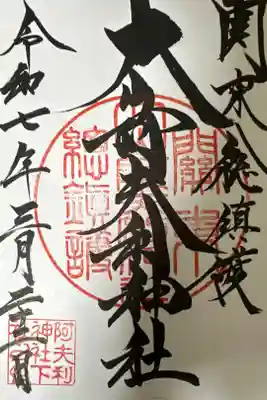 関東総鎮護
大山阿夫利神社
令和七年三月二十三日
關東
總鎮護
阿夫利
神社下